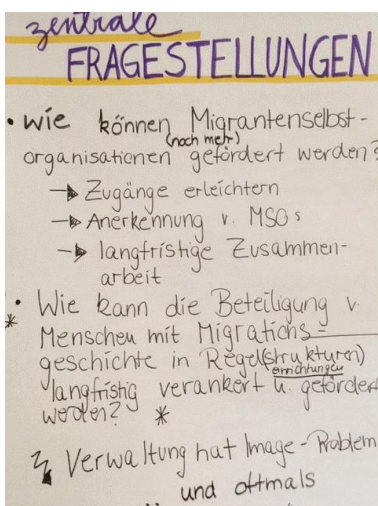 zentrale
FRAGESTELLUNGEN
• wie können Migrantenselbst-
(noch mehr)
organisationen gefördert werden?
→ Zugänge erleichtern
→ Anerkennung v. MSOs
→ langfristige Zusammen-
arbeit
• Wie kann die Beteiligung v.
* Menschen mit Migrations-
geschichte in Regel(strukturen)
einrichtungen
langfristig verankert u. gefördert
werden? *
Verwaltung hat Image-Problem
und oftmals